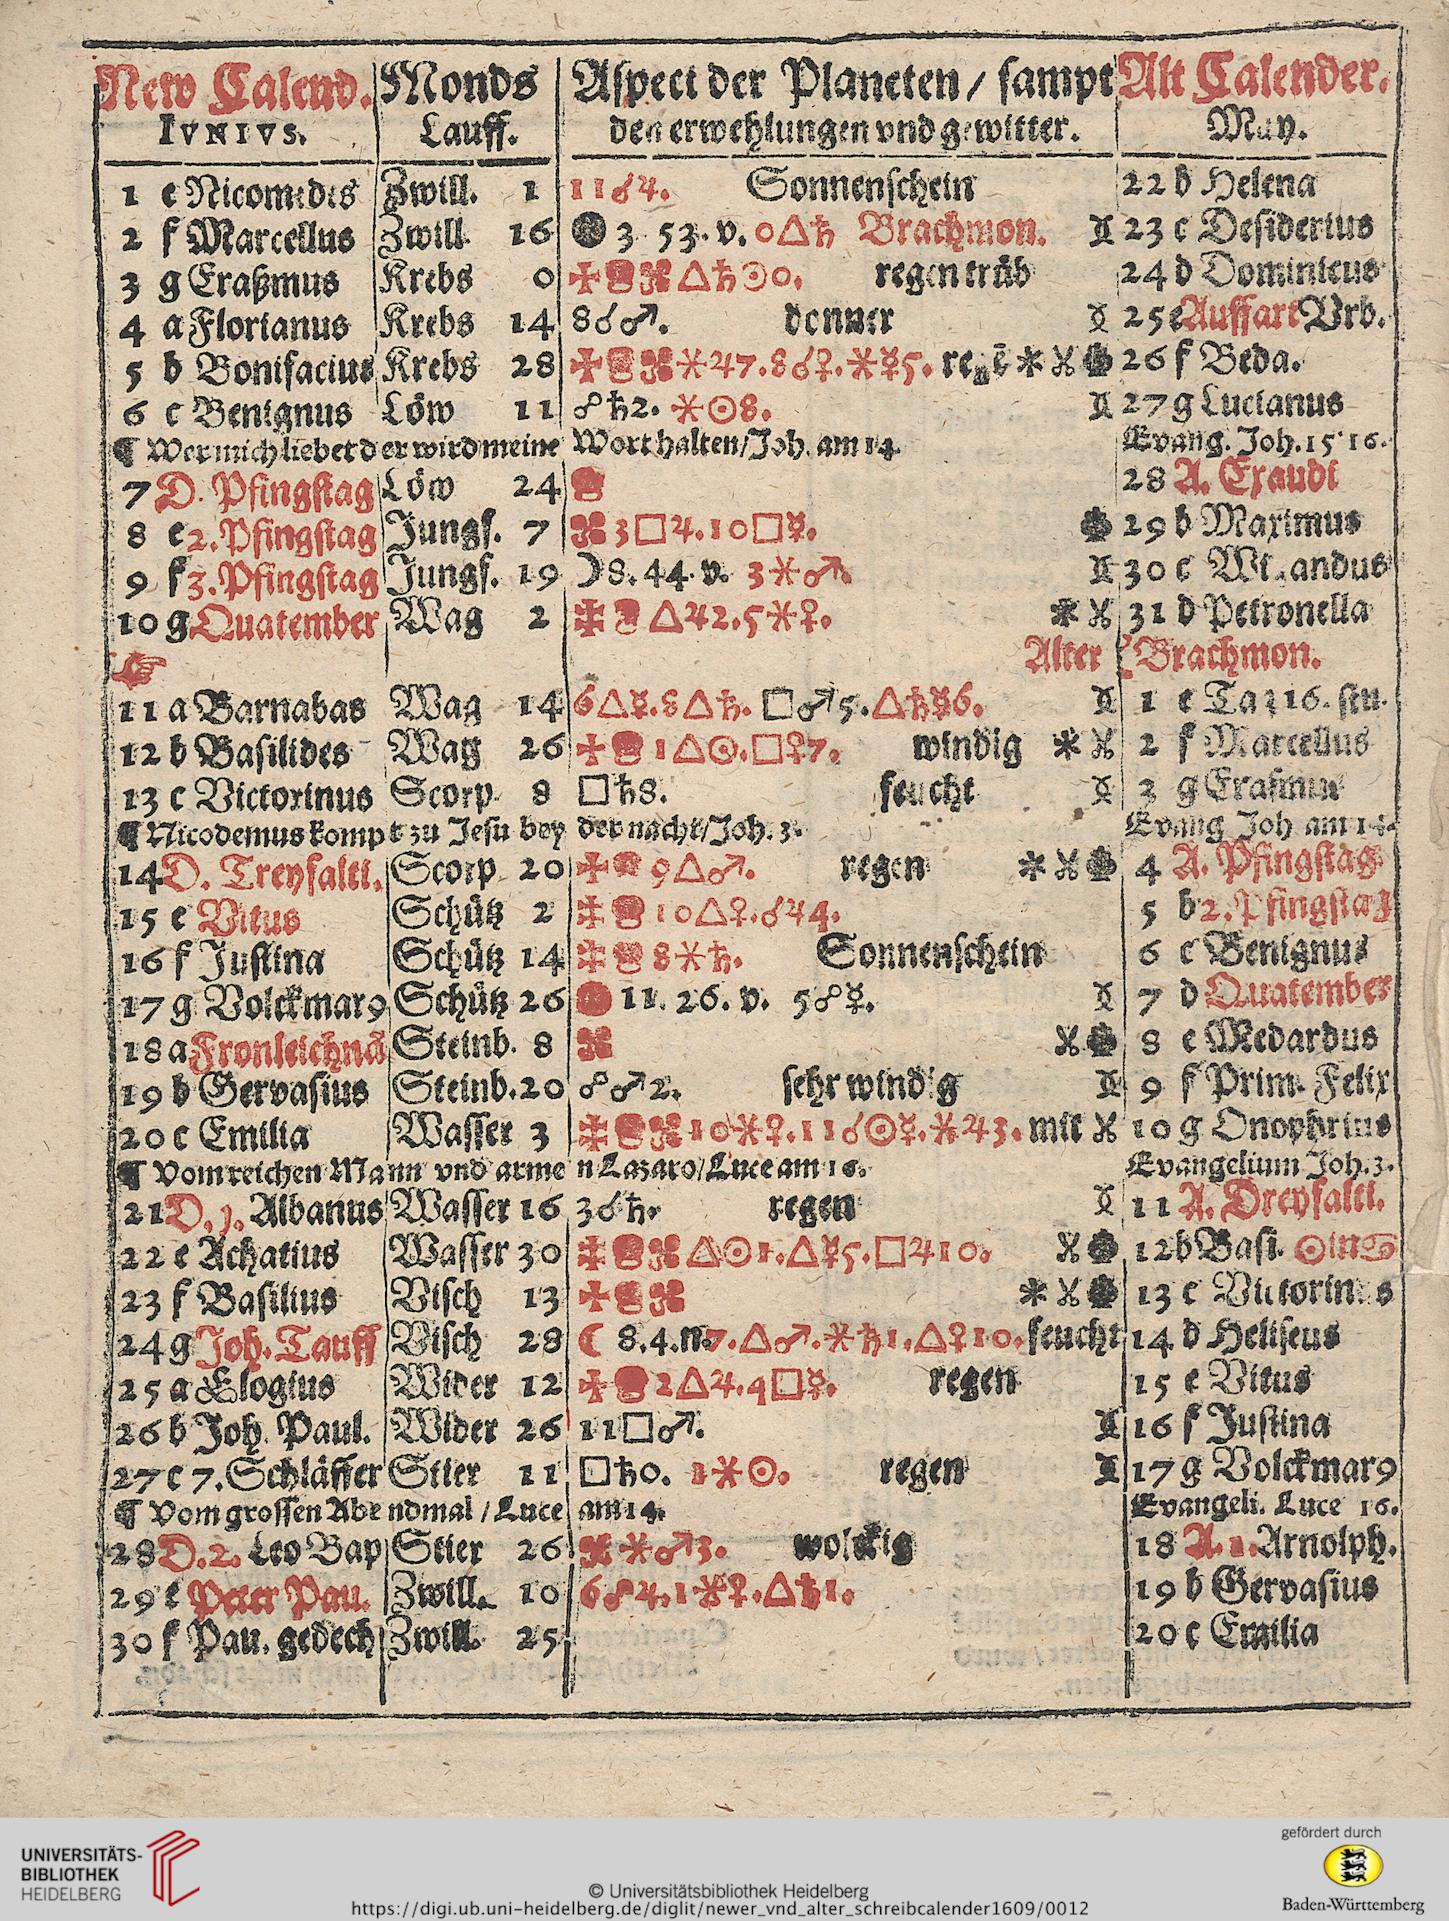 New Calend. Monds Aspect der Planeten / sampt Alt Calender.
IVNIVS. Lauff. den erwehlungen vnd gewitter. May.
1 e Nicomedes Zwill. 1 11☌♃. Sonnenschein 22 b Helena
2 f Marcellus Zwill. 16 3 53. v. 0△♄ Brachmon. 23 c Desiderius
3 g Eraßmus Krebs 0 △♄☉0. regen trüb 24 d Dominicus
4 a Florianus Krebs 14 8☌♂. donner 25 e Auffart Vrb.
5 b Bonifacius Krebs 28 ⚹♃7.8☌♀.⚹☿5. 26 f Beda.
6 c Benignus Löw 11 ☍♄2. ⚹☉8. 27 g Lucianus
¶ Wer mich liebet der wird meine Wort halten/Joh. am 14. Evang. Joh. 15 16.
7 D. Pfingstag Löw 24 28 A. Exaudi
8 e 2. Pfingstag Jungf. 7 3□♃.10□☿. 29 b Maximus
9 f 3. Pfingstag Jungf. 19 ☽8. 44. v. 3⚹♂. 30 c
10 g Quatember Wag 2 △♃2.5⚹♀. 31 d Petronella
Alter Brachmon.
11 a Barnabas Wag 14 6△☿.8△♄. □♂5.△♄☿6. 1 e
12 b Basilides Wag 26 1△☉.□♀7. windig 2 f Marcellus
13 c Victorinus Scorp. 8 □♄8. feucht 3 g Erasmus
¶ Nicodemus kompt zu Jesu bey der nacht/Joh. 3. Evang Joh am 14.
14 D. Treyfalti. Scorp 20 9△♂. regen 4 A. Pfingstag
15 e Vitus Schütz 2 10△♀.☌♃4. 5 b 2. Pfingstag
16 f Justina Schütz 14 8⚹♄. Sonnenschein 6 c Benignus
17 g Volckmar9 Schütz 26 11. 26. v. 5☍☿. 7 d Quatember
18 a Fronleichnā Steinb. 8 8 e Medardus
19 b Gervasius Steinb. 20 ☍♂2. sehr windig 9 f Prim. Felix
20 c Emilia Wasser 3 10⚹♀.11☌☉☿.⚹♃3. mit 10 g Onophrius
¶ Vom reichen Mann vnd armen Lazaro/Luce am 16. Evangelium Joh. 3.
21 D. 1. Albanus Wasser 16 3☌♄. regen 11 A. Dreyfalti.
22 e Achatius Wasser 30 △☉1.△☿5.□♃10. 12 b Basi. ☉in♋
23 f Basilius Visch 13 13 c Victorinus
24 g Joh. Tauff Visch 28 ☾ 8.4.n.7.△♂.⚹♄1.△♀10. feucht 14 d Heliseus
25 a Elogius Wider 12 2△♃.4□☿. regen 15 e Vitus
26 b Joh. Paul. Wider 26 11□♂. 16 f Justina
27 c 7. Schläffer Stier 11 □♄0. 1⚹☉. regen 17 g Volckmar9
¶ Vom grossen Abendmal / Luce am 14. Evangeli. Luce 16.
28 D. 2. Leo Bap Stier 26 ⚹♂3. wolckig 18 A. 1. Arnolph.
29 e Peter Pau. Zwill. 10 6☍♃.1⚹♀.△♄1. 19 b Gervasius
30 f Pau. gedech Zwill. 25 20 c Emilia
UNIVERSITÄTS-
BIBLIOTHEK
HEIDELBERG
© Universitätsbibliothek Heidelberg
https://digi.ub.uni-heidelberg.de/diglit/newer_vnd_alter_schreibcalender1609/0012
gefördert durch
Baden-Württemberg